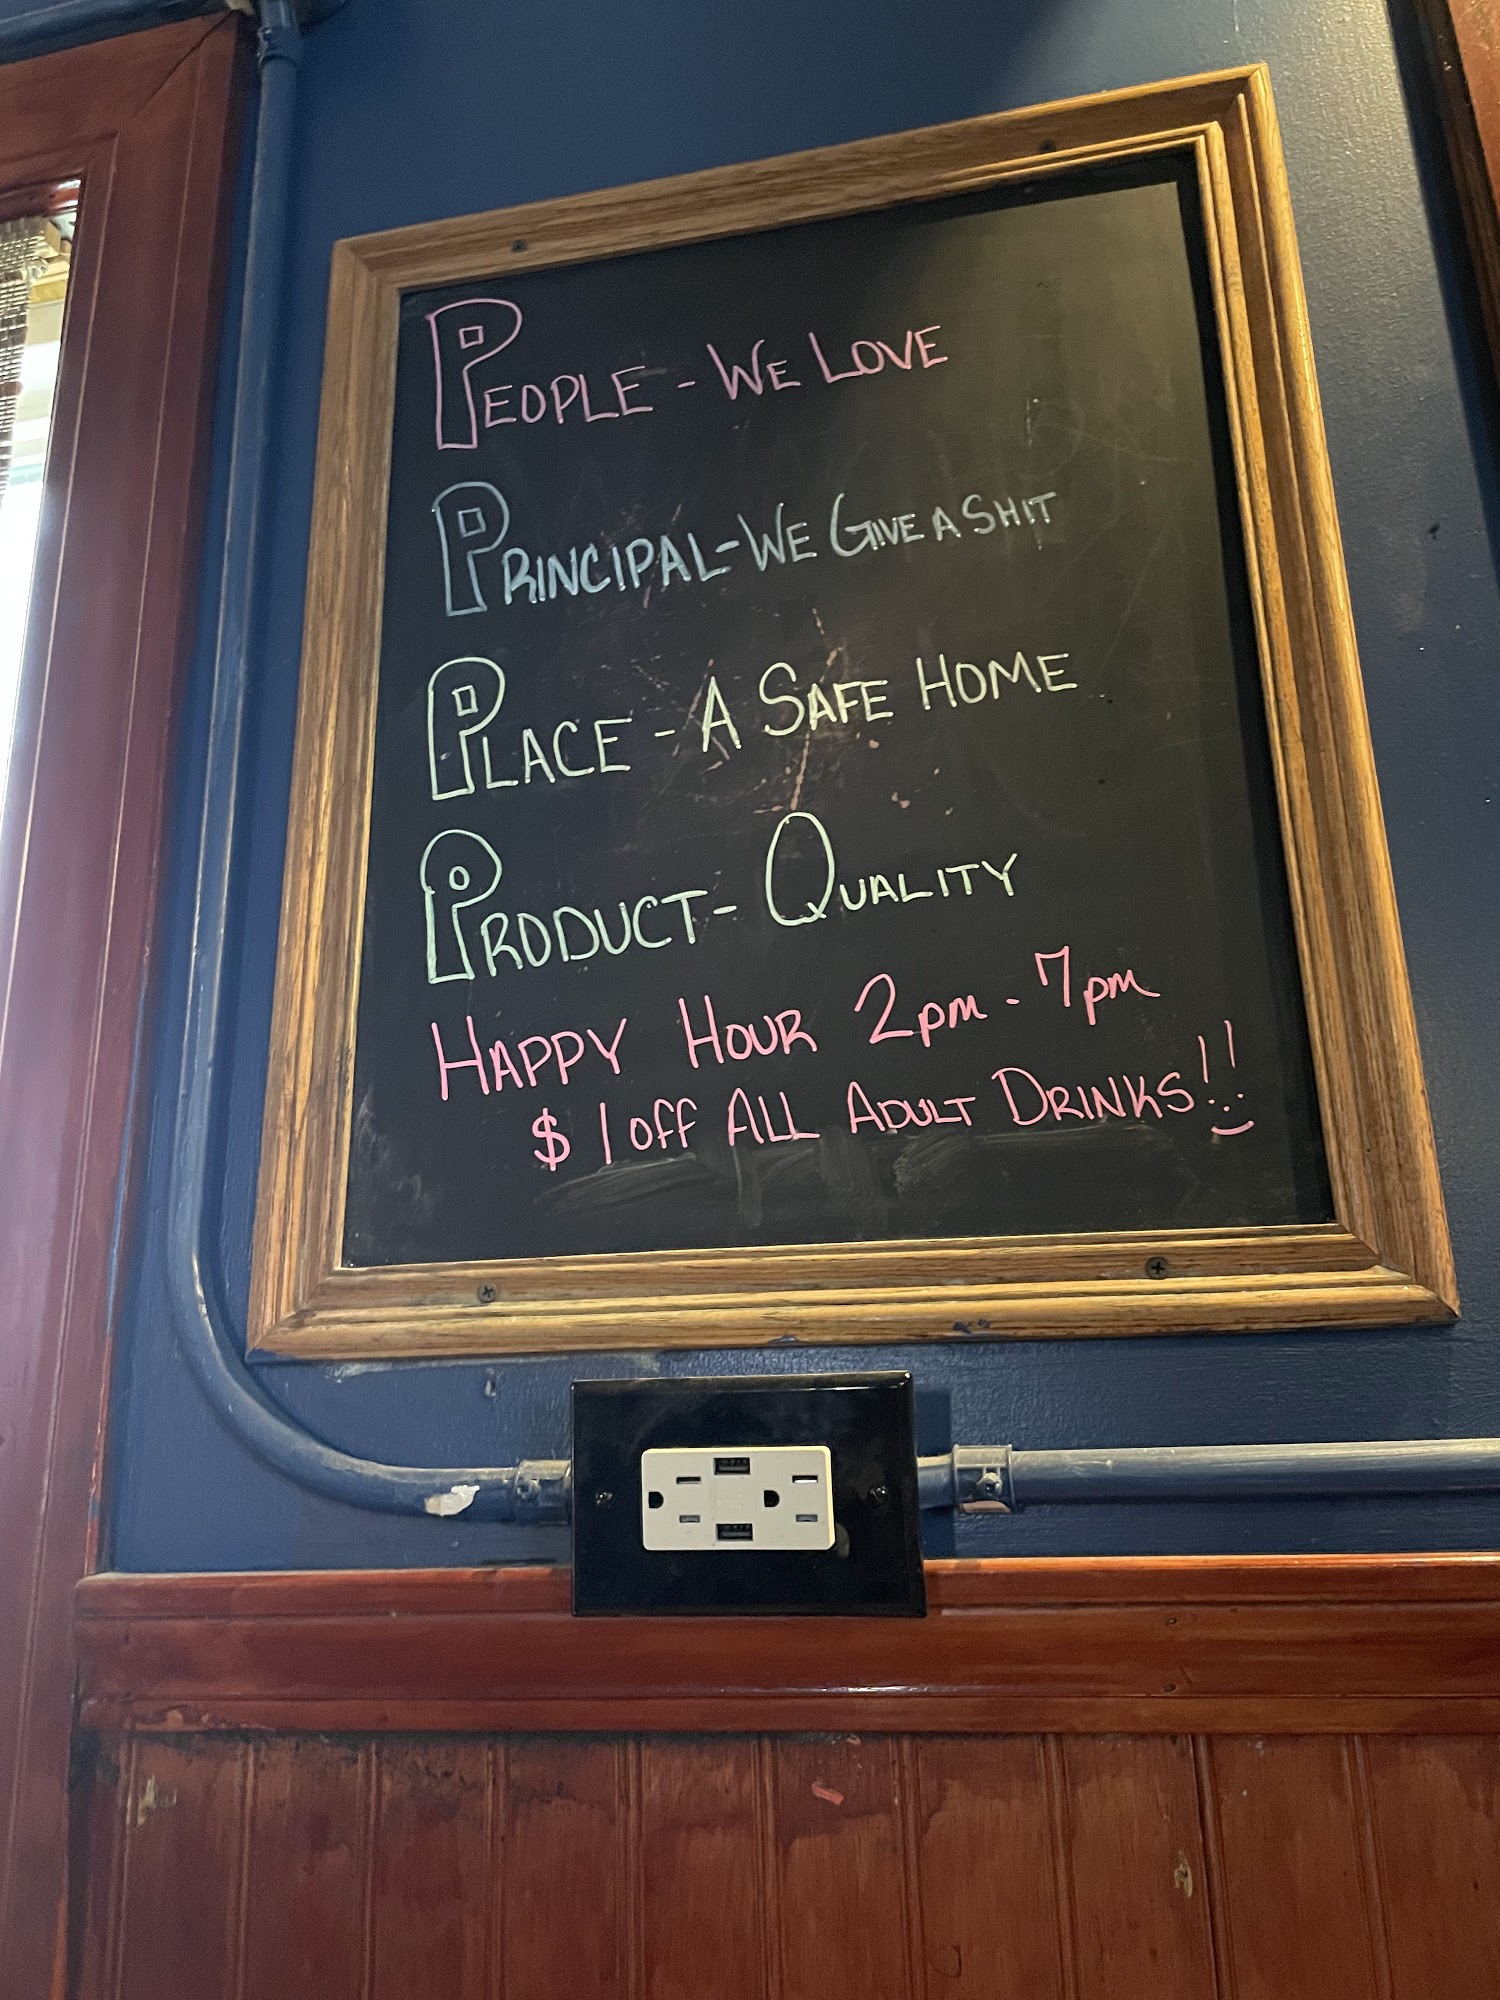 PEOPLE - WE LOVE
PRINCIPAL - WE GIVE A SHIT
PLACE - A SAFE HOME
PRODUCT - QUALITY
HAPPY HOUR 2pm - 7pm
$1 OFF ALL ADULT DRINKS!!